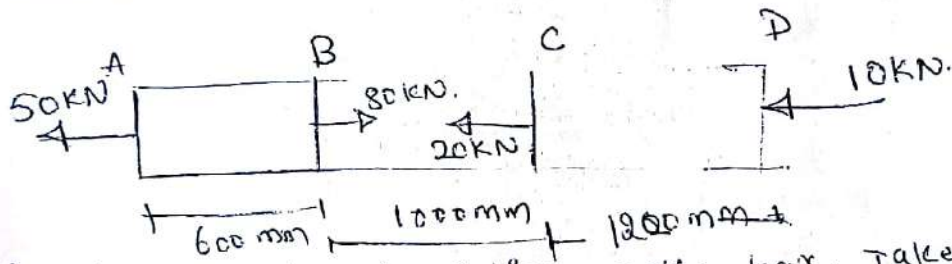 A B C D
50KN 80KN. 20KN 10KN.
600mm 1000mm 1200mm
the bar. Take